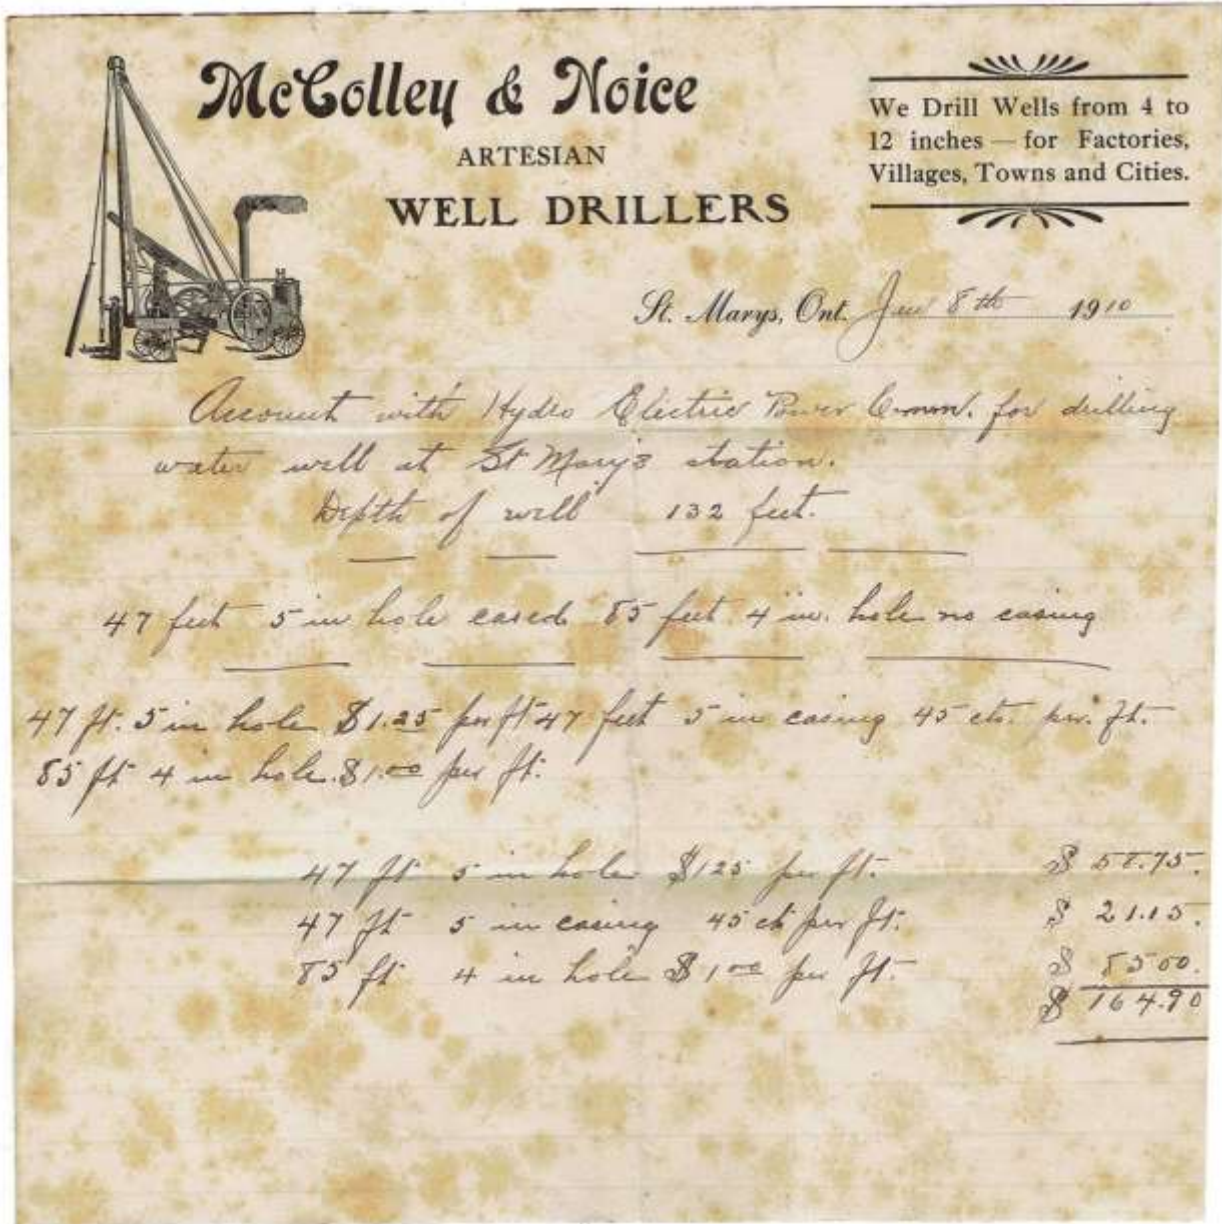 McColley & Noice
ARTESIAN
WELL DRILLERS
We Drill Wells from 4 to
12 inches — for Factories,
Villages, Towns and Cities.
St. Marys, Ont. 8th 1910
Account with Hydro Electric Power Comm. for drilling
water well at St Mary's station.
Depth of well 132 feet.
47 feet 5 in hole cased 85 feet 4 in. hole no casing
47 ft. 5 in hole $1.25 per ft 47 feet 5 in casing 45 cts. per. ft.
85 ft 4 in hole. $1.00 per ft.
47 ft 5 in hole $125 per ft. $ 58.75.
47 ft 5 in casing 45 ct per ft. $ 21.15.
85 ft 4 in hole $1.00 per ft. $ 85 00.
$ 164.90